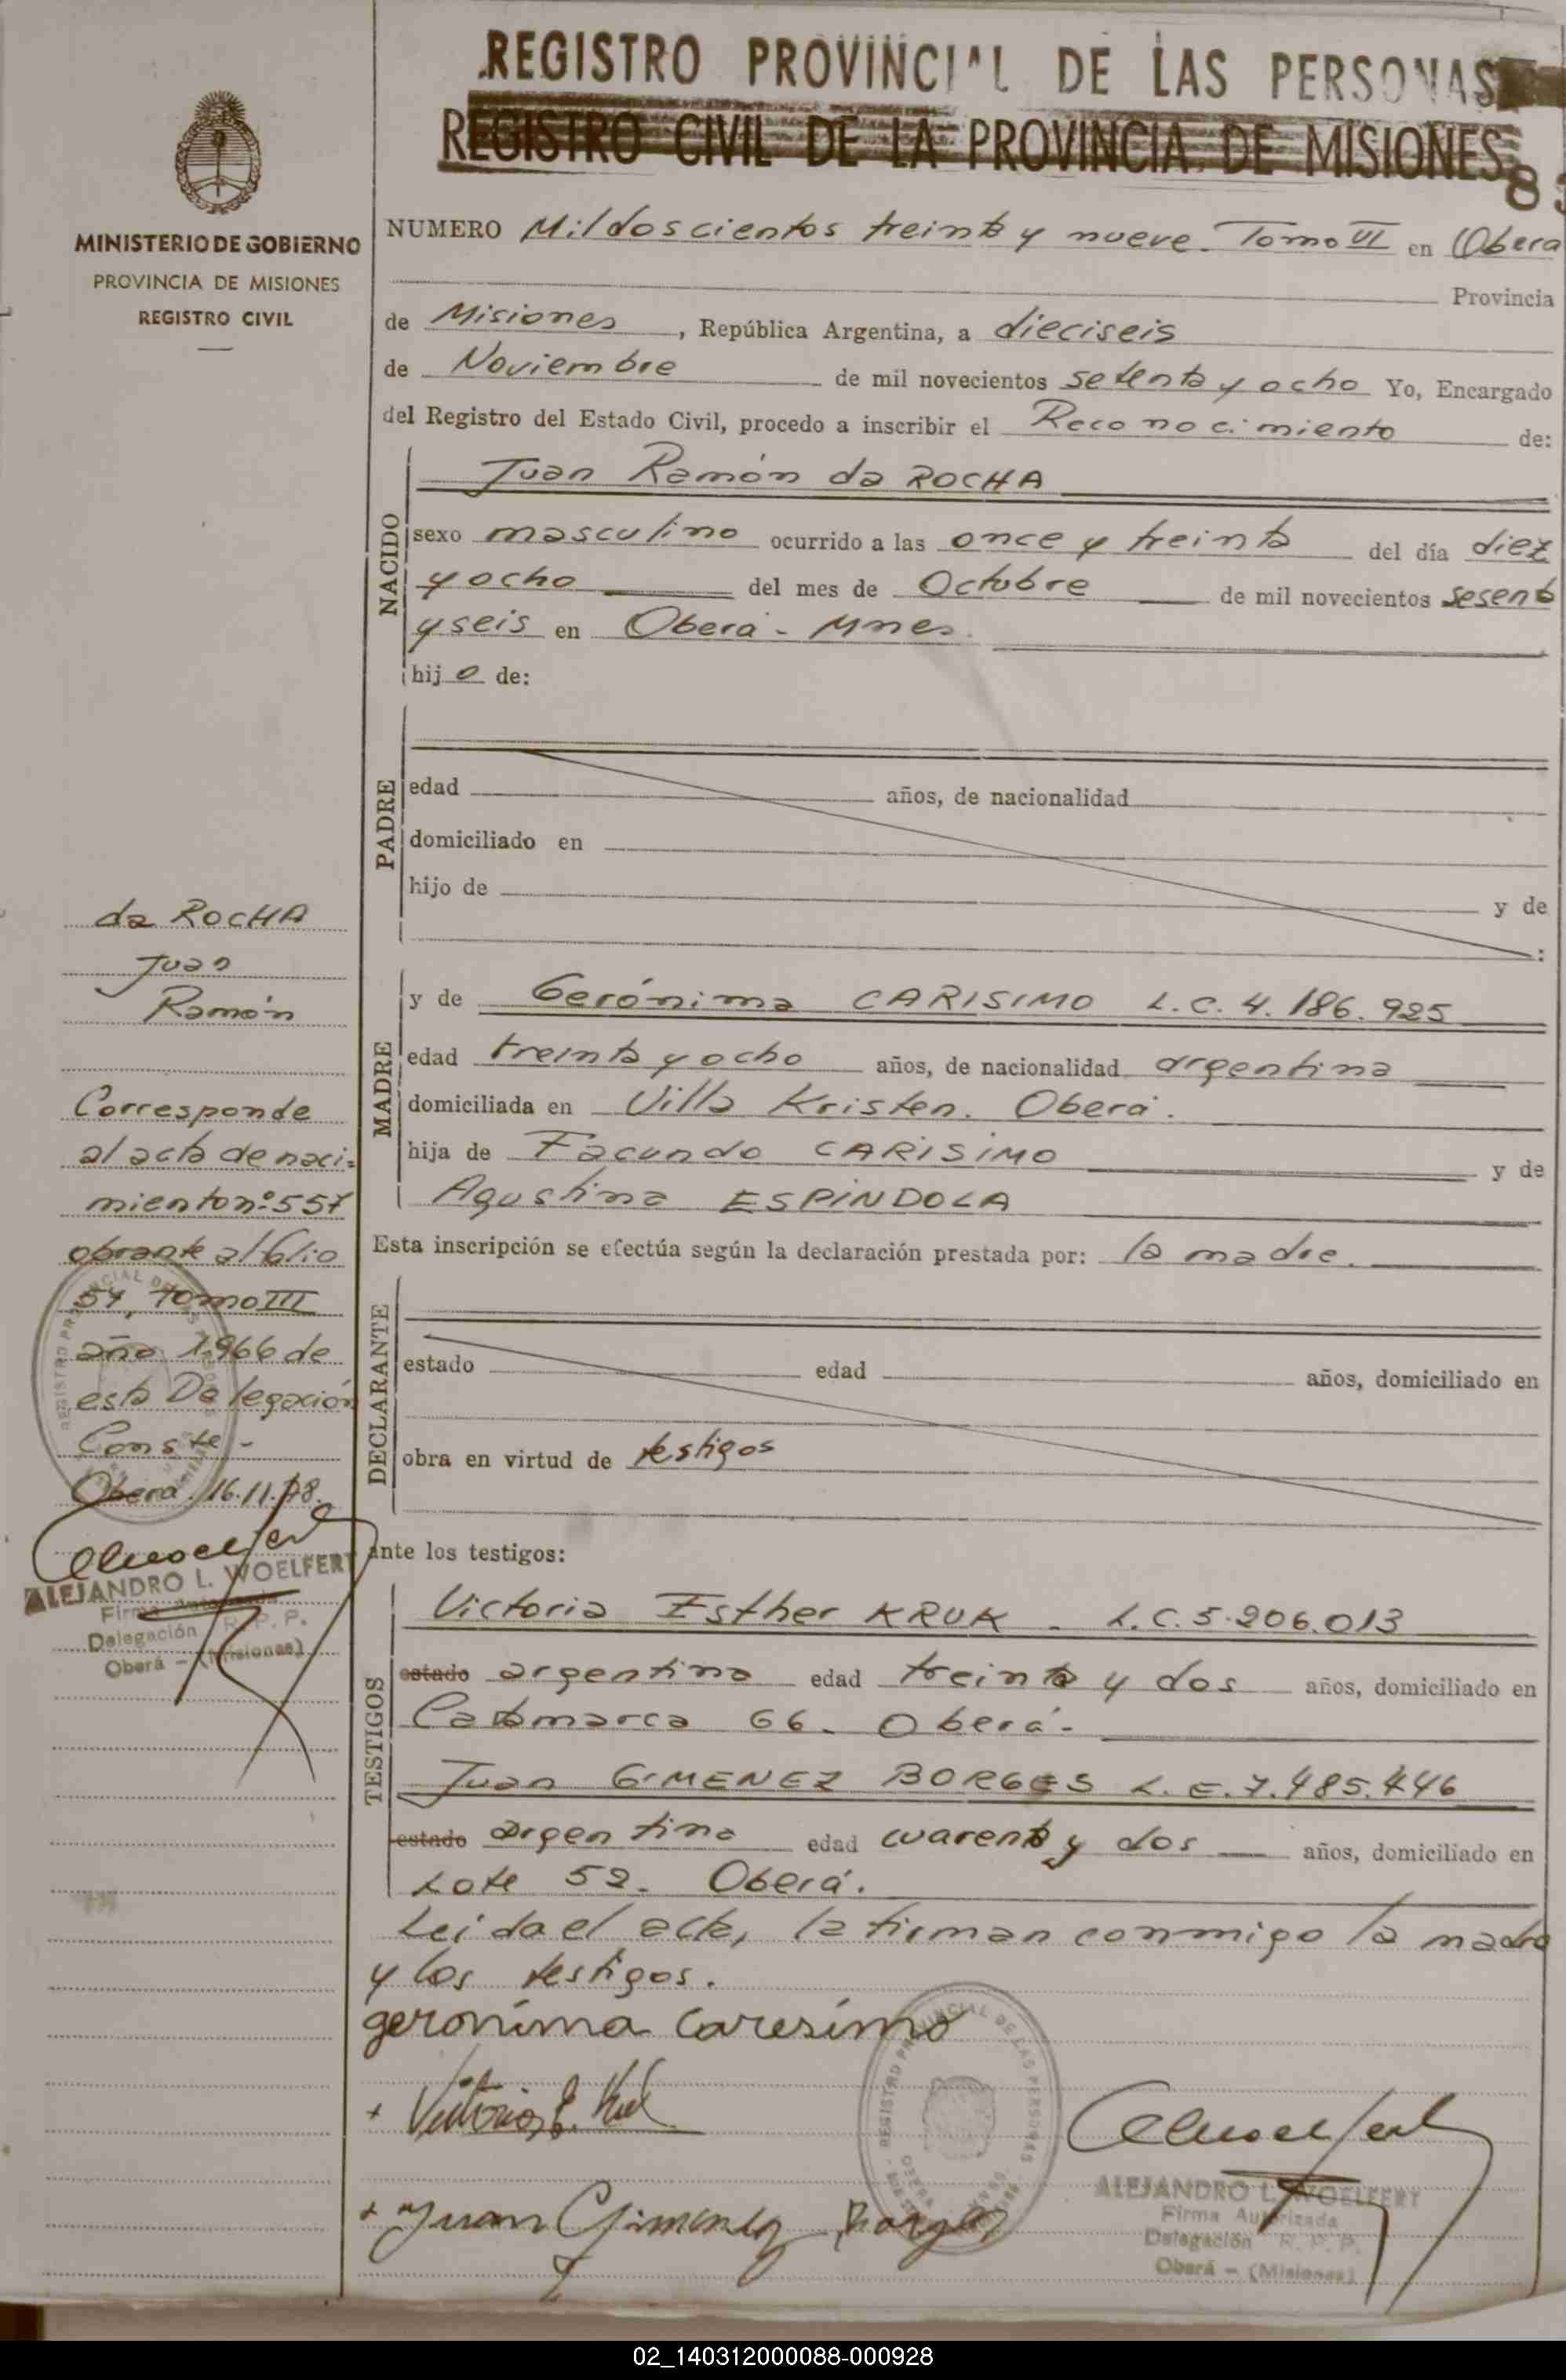 REGISTRO PROVINCIAL DE LAS PERSONAS
REGISTRO CIVIL DE LA PROVINCIA DE MISIONES
83
MINISTERIO DE GOBIERNO
PROVINCIA DE MISIONES
REGISTRO CIVIL
NUMERO Mil doscientos treinta y nueve. Tomo VI en Oberá
Provincia
de Misiones, República Argentina, a dieciseis
de Noviembre de mil novecientos setenta y ocho Yo, Encargado
del Registro del Estado Civil, procedo a inscribir el Reconocimiento de:
NACIDO
Juan Ramón da ROCHA
sexo masculino ocurrido a las once y treinta del día diez
y ocho del mes de Octubre de mil novecientos sesenta
y seis en Oberá - Mnes.
hijo de:
PADRE
edad años, de nacionalidad
domiciliado en
hijo de y de
:
MADRE
y de Gerónima CARISIMO L.C. 4.186.925
edad treinta y ocho años, de nacionalidad argentina
domiciliada en Villa Kristen. Oberá.
hija de Facundo CARISIMO y de
Agustina ESPINDOLA
Esta inscripción se efectúa según la declaración prestada por: la madre.
DECLARANTE
estado edad años, domiciliado en
obra en virtud de testigos
ante los testigos:
TESTIGOS
Victoria Esther KRUK. L.C. 5.206.013
estado argentina edad treinta y dos años, domiciliado en
Catamarca 66. Oberá.
Juan GIMENEZ BORGES L.E. 7.485.446
estado argentina edad cuarenta y dos años, domiciliado en
Lote 52. Oberá.
Leida el acta, la firman conmigo la madre
y los testigos.
geronima caresimo
Victoria E. Kruk
Juan Gimenez Borges
REGISTRO PROVINCIAL DE LAS PERSONAS
ALEJANDRO L. WOELFERT
Firma Autorizada
Delegación R. P. P.
Oberá - (Misiones)
da ROCHA
Juan
Ramón
Corresponde
al acta de naci-
miento nº 557
obrante al folio
54, tomo III
año 1.966 de
esta Delegación
Conste.-
Oberá. 16.11.78.
ALEJANDRO L. WOELFERT
Firma Autorizada
Delegación R. P. P.
Oberá - (Misiones)
02_140312000088-000928